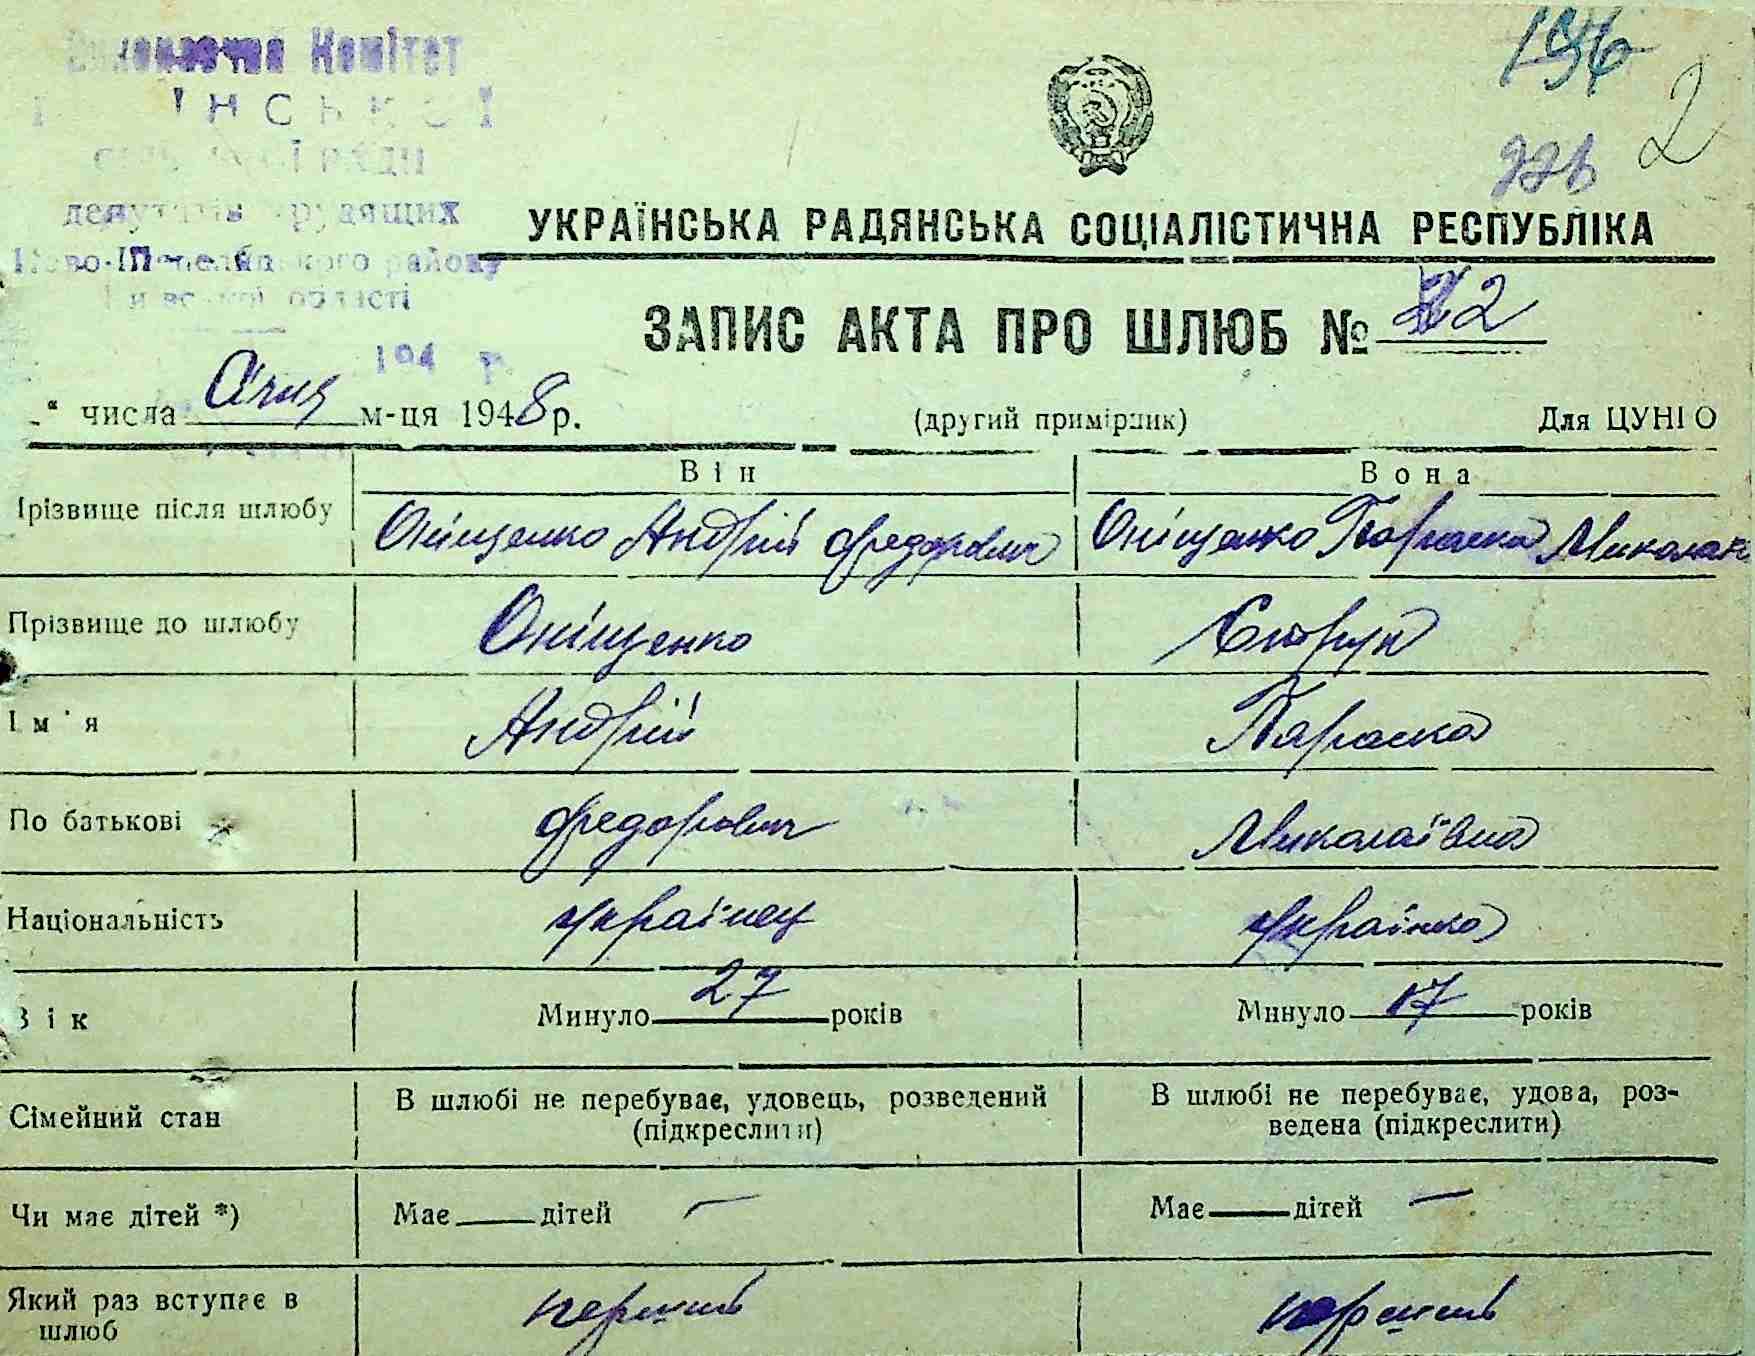 Комітет
депутатів трудящих
району
області
194 р.
196
2
УКРАЇНСЬКА РАДЯНСЬКА СОЦІАЛІСТИЧНА РЕСПУБЛІКА
ЗАПИС АКТА ПРО ШЛЮБ № 2
" числа січня м-ця 1948 р. (другий примірник) Для ЦУНГО
Він Вона
Прізвище після шлюбу Оніщенко Андрій Федорович Оніщенко Параска Миколаї
Прізвище до шлюбу Оніщенко
Ім'я Андрій Параска
По батькові Федорович Миколаївна
Національність українец українка
Вік Минуло 27 років Минуло 17 років
Сімейний стан В шлюбі не перебуває, удовець, розведений В шлюбі не перебуває, удова, роз-
(підкреслити) ведена (підкреслити)
Чи має дітей *) Має — дітей — Має — дітей —
Який раз вступає в перший перший
шлюб